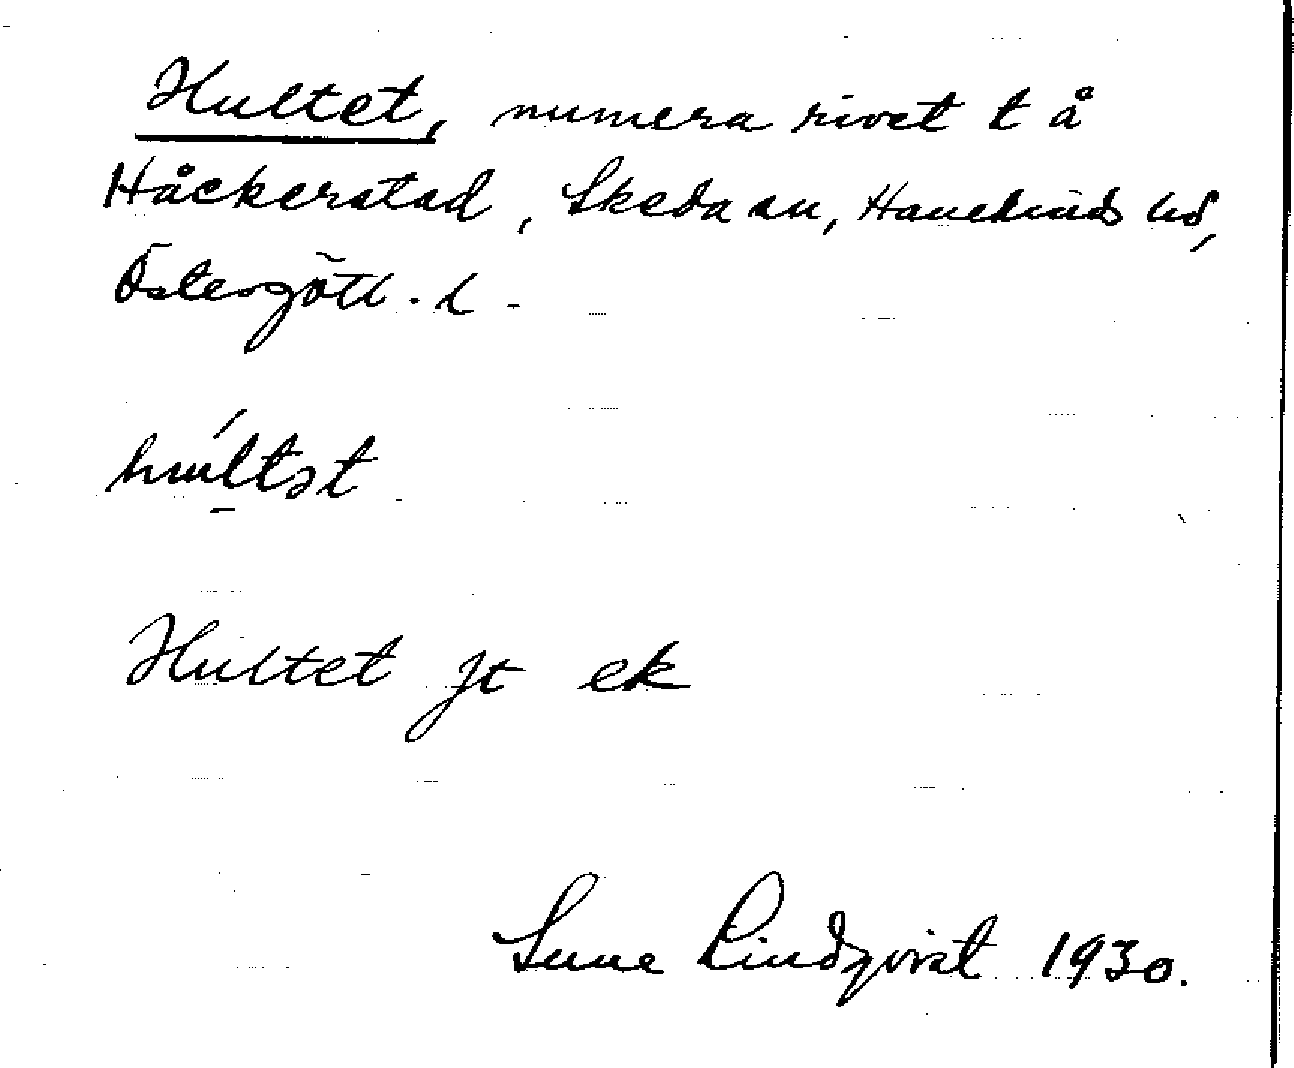 Hultet, numera rivet t å
Håckerstad, Skeda sn, Hanekinds hd,
Östergötl. l.
húltət
Hultet jt ek
Sune Lindqvist 1930.